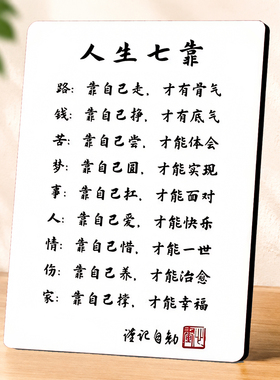 人生七靠
路：靠自己走，才有骨气
钱：靠自己挣，才有底气
苦：靠自己尝，才能体会
梦：靠自己圆，才能实现
事：靠自己扛，才能面对
人：靠自己爱，才能快乐
情：靠自己惜，才能一世
伤：靠自己养，才能治愈
家：靠自己撑，才能幸福
谨记自勉